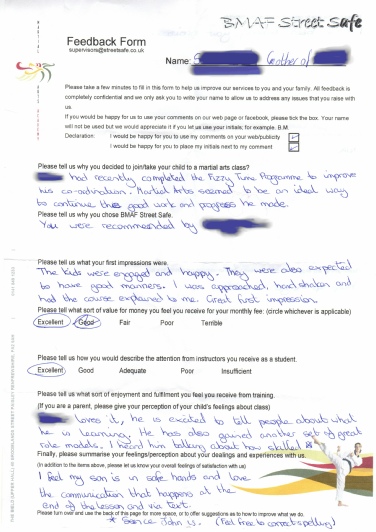 BMAF Street Safe
Feedback Form
supervisors@streetsafe.co.uk
Name: S (Mother of
Please take a few minutes to fill in this form to help us improve our services to you and your family. All feedback is
completely confidential and we only ask you to write your name to allow us to address any issues that you raise with
us.
If you would be happy for us to use your comments on our web page or facebook, please tick the box. Your name
will not be used but we would appreciate it if you let us use your initials; for example. B.M.
Declaration: I would be happy for you to use my comments on your web/publicity
I would be happy for you to place my initials next to my comment
Please tell us why you decided to join/take your child to a martial arts class?
had recently completed the Fizzy Tums Programme to improve
his co-ordination. Martial Arts seemed to be an ideal way
to continue the good work and progress he made.
Please tell us why you chose BMAF Street Safe.
You were recommended by
Please tell us what your first impressions were.
The kids were engaged and happy. They were also expected
to have good manners. I was approached, hand shaken and
had the course explained to me. Great first impression.
Please tell us what sort of value for money you feel you receive for your monthly fee: (circle whichever is applicable)
Excellent Good Fair Poor Terrible
Please tell us how you would describe the attention from instructors you receive as a student.
Excellent Good Adequate Poor Insufficient
Please tell us what sort of enjoyment and fulfilment you feel you receive from training.
(If you are a parent, please give your perception of your child's feelings about class)
loves it, he is excited to tell people about what
he is learning. He has also gained another set of great
role models. I heard him talking about how skilled
Finally, please summarise your feelings/perception about your dealings and experiences with us.
(In addition to the items above, please let us know your overall feelings of satisfaction with us)
I feel my son is in safe hands and love
the communication that happens at the
end of the lesson and via text.
Please turn over and use the back of this page for more space, or to offer suggestions as to how to improve what we do.
* John U. (Feel free to correct spelling)